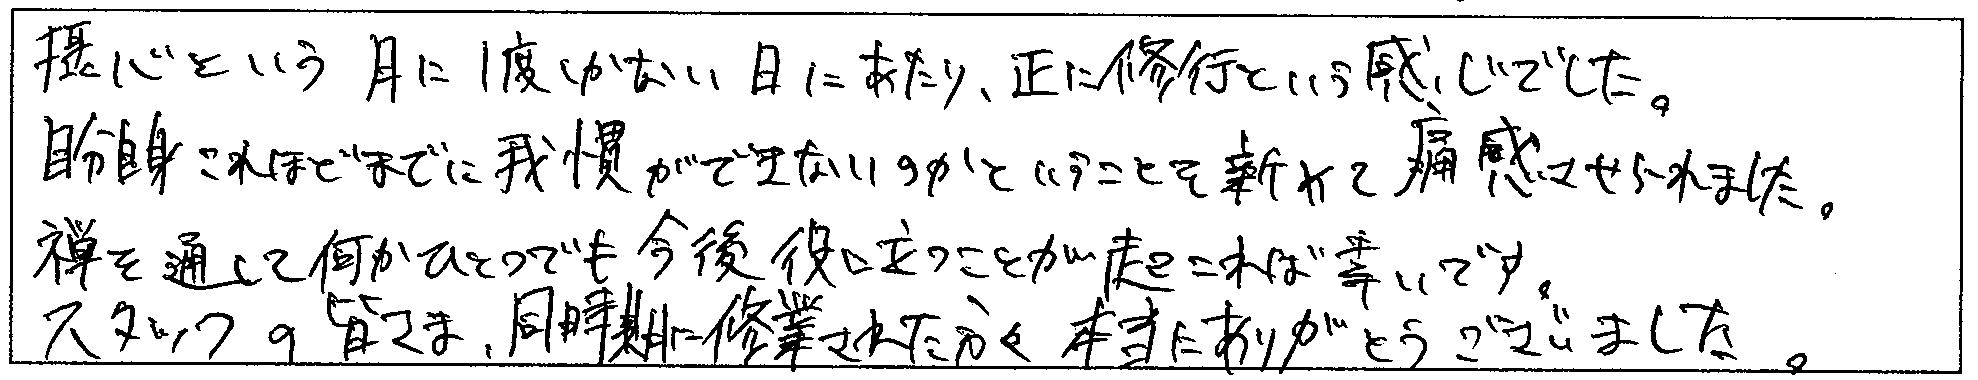 摂心という月に1度しかない日にあたり、正に修行という感じでした。
自分自身これほどまでに我慣ができないのかということを新めて痛感させられました。
禅を通して何かひとつでも今後役に立つことが起これば幸いです。
スタッフの皆さま、同時期に修業された方々本当にありがとうございました。